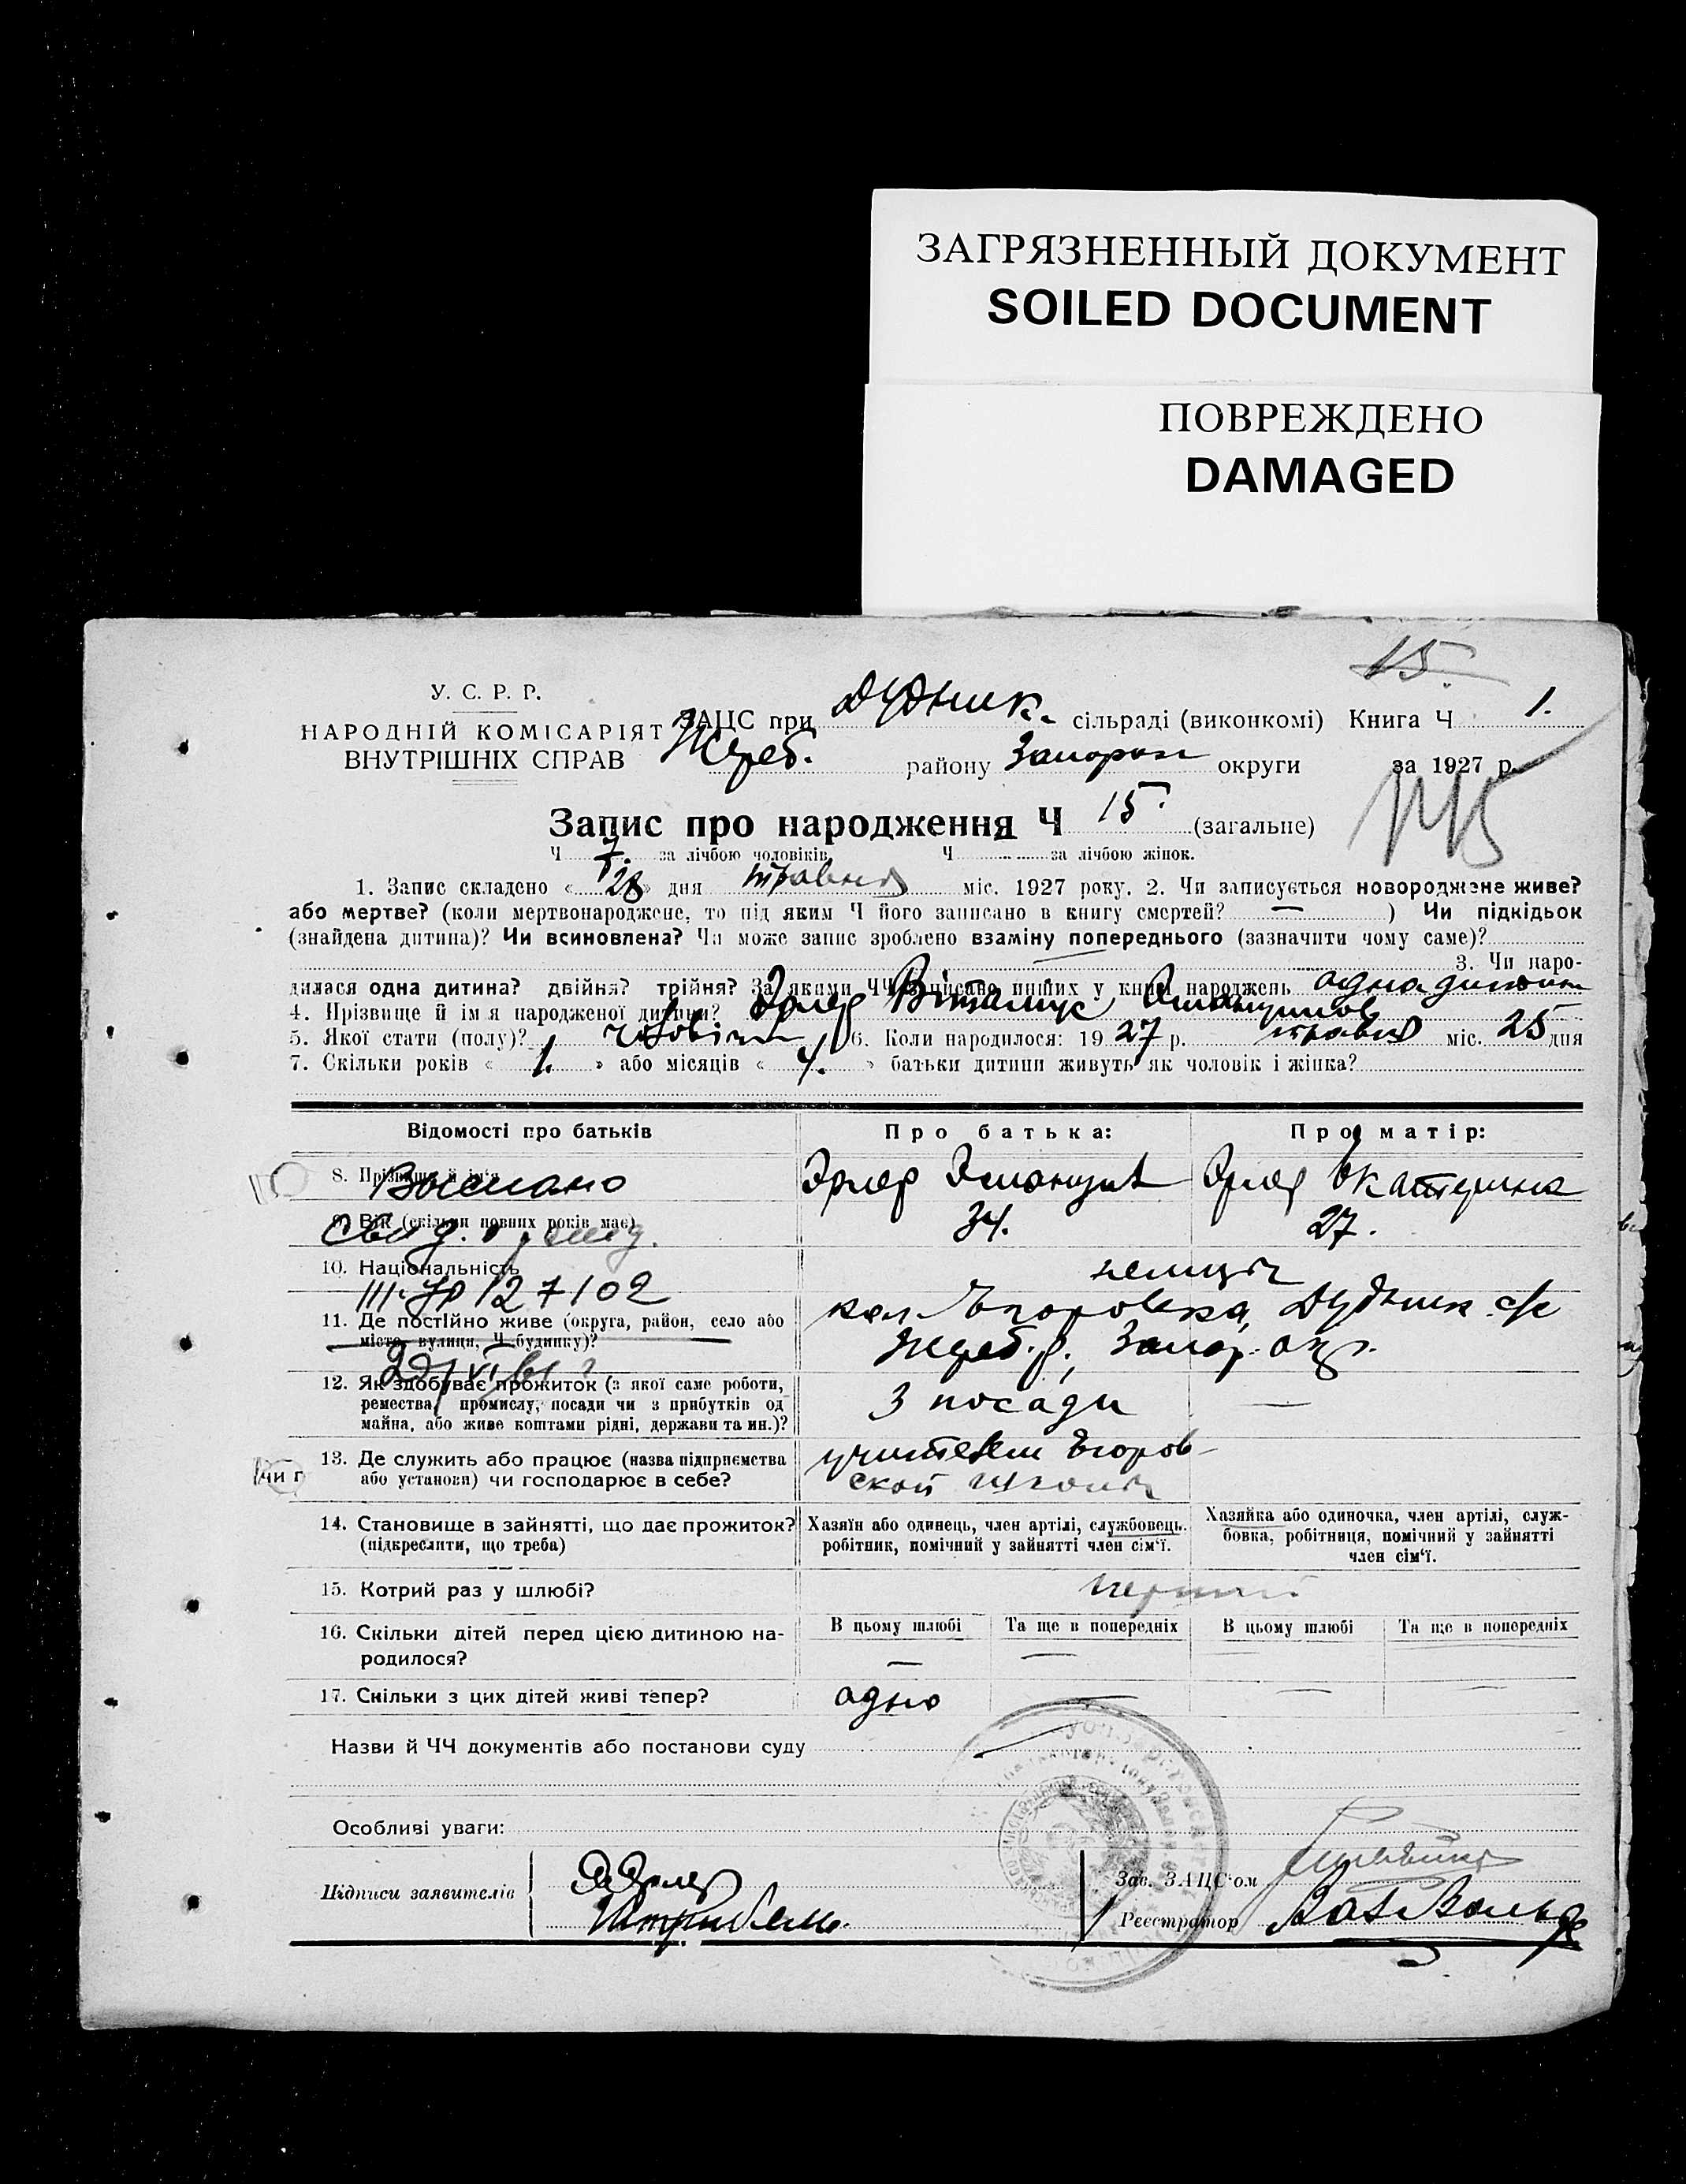 ЗАГРЯЗНЕННЫЙ ДОКУМЕНТ
SOILED DOCUMENT
ПОВРЕЖДЕНО
DAMAGED
15.
У. С. Р. Р.
НАРОДНІЙ КОМІСАРІЯТ
ВНУТРІШНІХ СПРАВ
ЗАЦС при Дудник. сільраді (виконкомі) Книга Ч 1.
Жереб. району Запорож округи за 1927 р.
Запис про народження Ч 15. (загальне)
Ч 7. за лічбою чоловіків Ч за лічбою жінок.
1. Запис складено « 28 » дня травня міс. 1927 року. 2. Чи записується новороджене живе?
або мертве? (коли мертвонароджене, то під яким Ч його записано в книгу смертей? — ) Чи підкідьок
(знайдена дитина)? Чи всиновлена? Чи може запис зроблено взаміну попереднього (зазначити чому саме)?
3. Чи наро-
дилася одна дитина? двійня? трійня? За якими ЧЧ записано инших у книзі народжень одна дитина
4. Прізвище й ім'я народженої дитини? Эрлер
5. Якої стати (полу)? 6. Коли народилося: 19 27 р. травня міс. 25 дня
7. Скільки років « 1. » або місяців « 4. » батьки дитини живуть як чоловік і жінка?
Відомості про батьків
Про батька:
Про матір:
8. Прізвище й ім'я
Выслано
Эрлер Эмануил
Эрлер Екатерина
9. Вік (скільки повних років має)
34.
27.
10. Національність
німці
III-ЯР 127102
11. Де постійно живе (округа, район, село або
місто, вулиця, Ч будинку)?
кол. Егоровка, Дудник. с/с
Жереб. р., Запор. окр.
12. Як здобуває прожиток (з якої саме роботи,
ремества, промислу, посади чи з прибутків од
майна, або живе коштами рідні, держави та ин.)?
З посади
—
чи г
13. Де служить або працює (назва підприємства
або установи) чи господарює в себе?
учителем Егоров-
ской школи
14. Становище в зайнятті, що дає прожиток?
(підкреслити, що треба)
Хазяїн або одинець, член артілі, службовець.
робітник, помічний у зайнятті член сім'ї.
Хазяйка або одиночка, член артілі, служ-
бовка, робітниця, помічний у зайнятті
член сім'ї.
15. Котрий раз у шлюбі?
перший
16. Скільки дітей перед цією дитиною на-
родилося?
В цьому шлюбі
Та ще в попередніх
В цьому шлюбі
Та ще в попередніх
— —
17. Скільки з цих дітей живі тепер?
одно — — —
Назви й ЧЧ документів або постанови суду
Особливі уваги:
Підписи заявителів
Эрлер
Зав. ЗАЦС'ом
Реєстратор